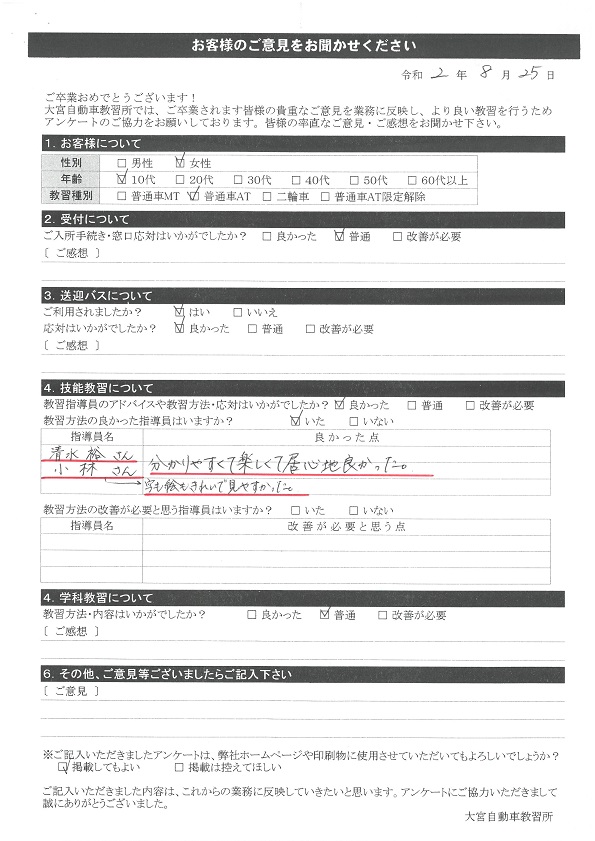 お客様のご意見をお聞かせください
令和 2 年 8 月 25 日
ご卒業おめでとうございます！
大宮自動車教習所では、ご卒業されます皆様の貴重なご意見を業務に反映し、より良い教習を行うため
アンケートのご協力をお願いしております。皆様の率直なご意見・ご感想をお聞かせ下さい。
1. お客様について
性別 □ 男性 ☑ 女性
年齢 ☑ 10代 □ 20代 □ 30代 □ 40代 □ 50代 □ 60代以上
教習種別 □ 普通車MT ☑ 普通車AT □ 二輪車 □ 普通車AT限定解除
2. 受付について
ご入所手続き・窓口応対はいかがでしたか？ □ 良かった ☑ 普通 □ 改善が必要
［ ご感想 ］
3. 送迎バスについて
ご利用されましたか？ ☑ はい □ いいえ
応対はいかがでしたか？ ☑ 良かった □ 普通 □ 改善が必要
［ ご感想 ］
4. 技能教習について
教習指導員のアドバイスや教習方法・応対はいかがでしたか？ ☑ 良かった □ 普通 □ 改善が必要
教習方法の良かった指導員はいますか？ ☑ いた □ いない
指導員名 良かった点
清水 裕 さん
小林 さん 分かりやすくて楽しくて居心地良かった。
→字も絵もきれいで見やすかった。
教習方法の改善が必要と思う指導員はいますか？ □ いた □ いない
指導員名 改善が必要と思う点
4. 学科教習について
教習方法・内容はいかがでしたか？ □ 良かった ☑ 普通 □ 改善が必要
［ ご感想 ］
6. その他、ご意見等ございましたらご記入下さい
［ ご意見 ］
※ご記入いただきましたアンケートは、弊社ホームページや印刷物に使用させていただいてもよろしいでしょうか？
☑ 掲載してもよい □ 掲載は控えてほしい
ご記入いただきました内容は、これからの業務に反映していきたいと思います。アンケートにご協力いただきまして
誠にありがとうございました。
大宮自動車教習所